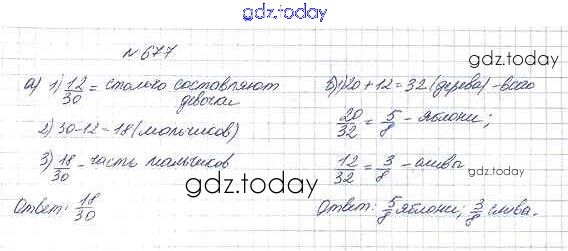 gdz.today
№677
gdz.today
а) 1) 12/30 = столько составляют
девочки
2) 30-12=18 (мальчиков)
3) 18/30 - часть мальчиков
Ответ: 18/30
б) 1) 20+12=32 (дерева) - всего
20/32 = 5/8 - яблони;
12/32 = 3/8 - сливы
gdz.today
gdz.today
Ответ: 5/8 яблони; 3/8 слива.